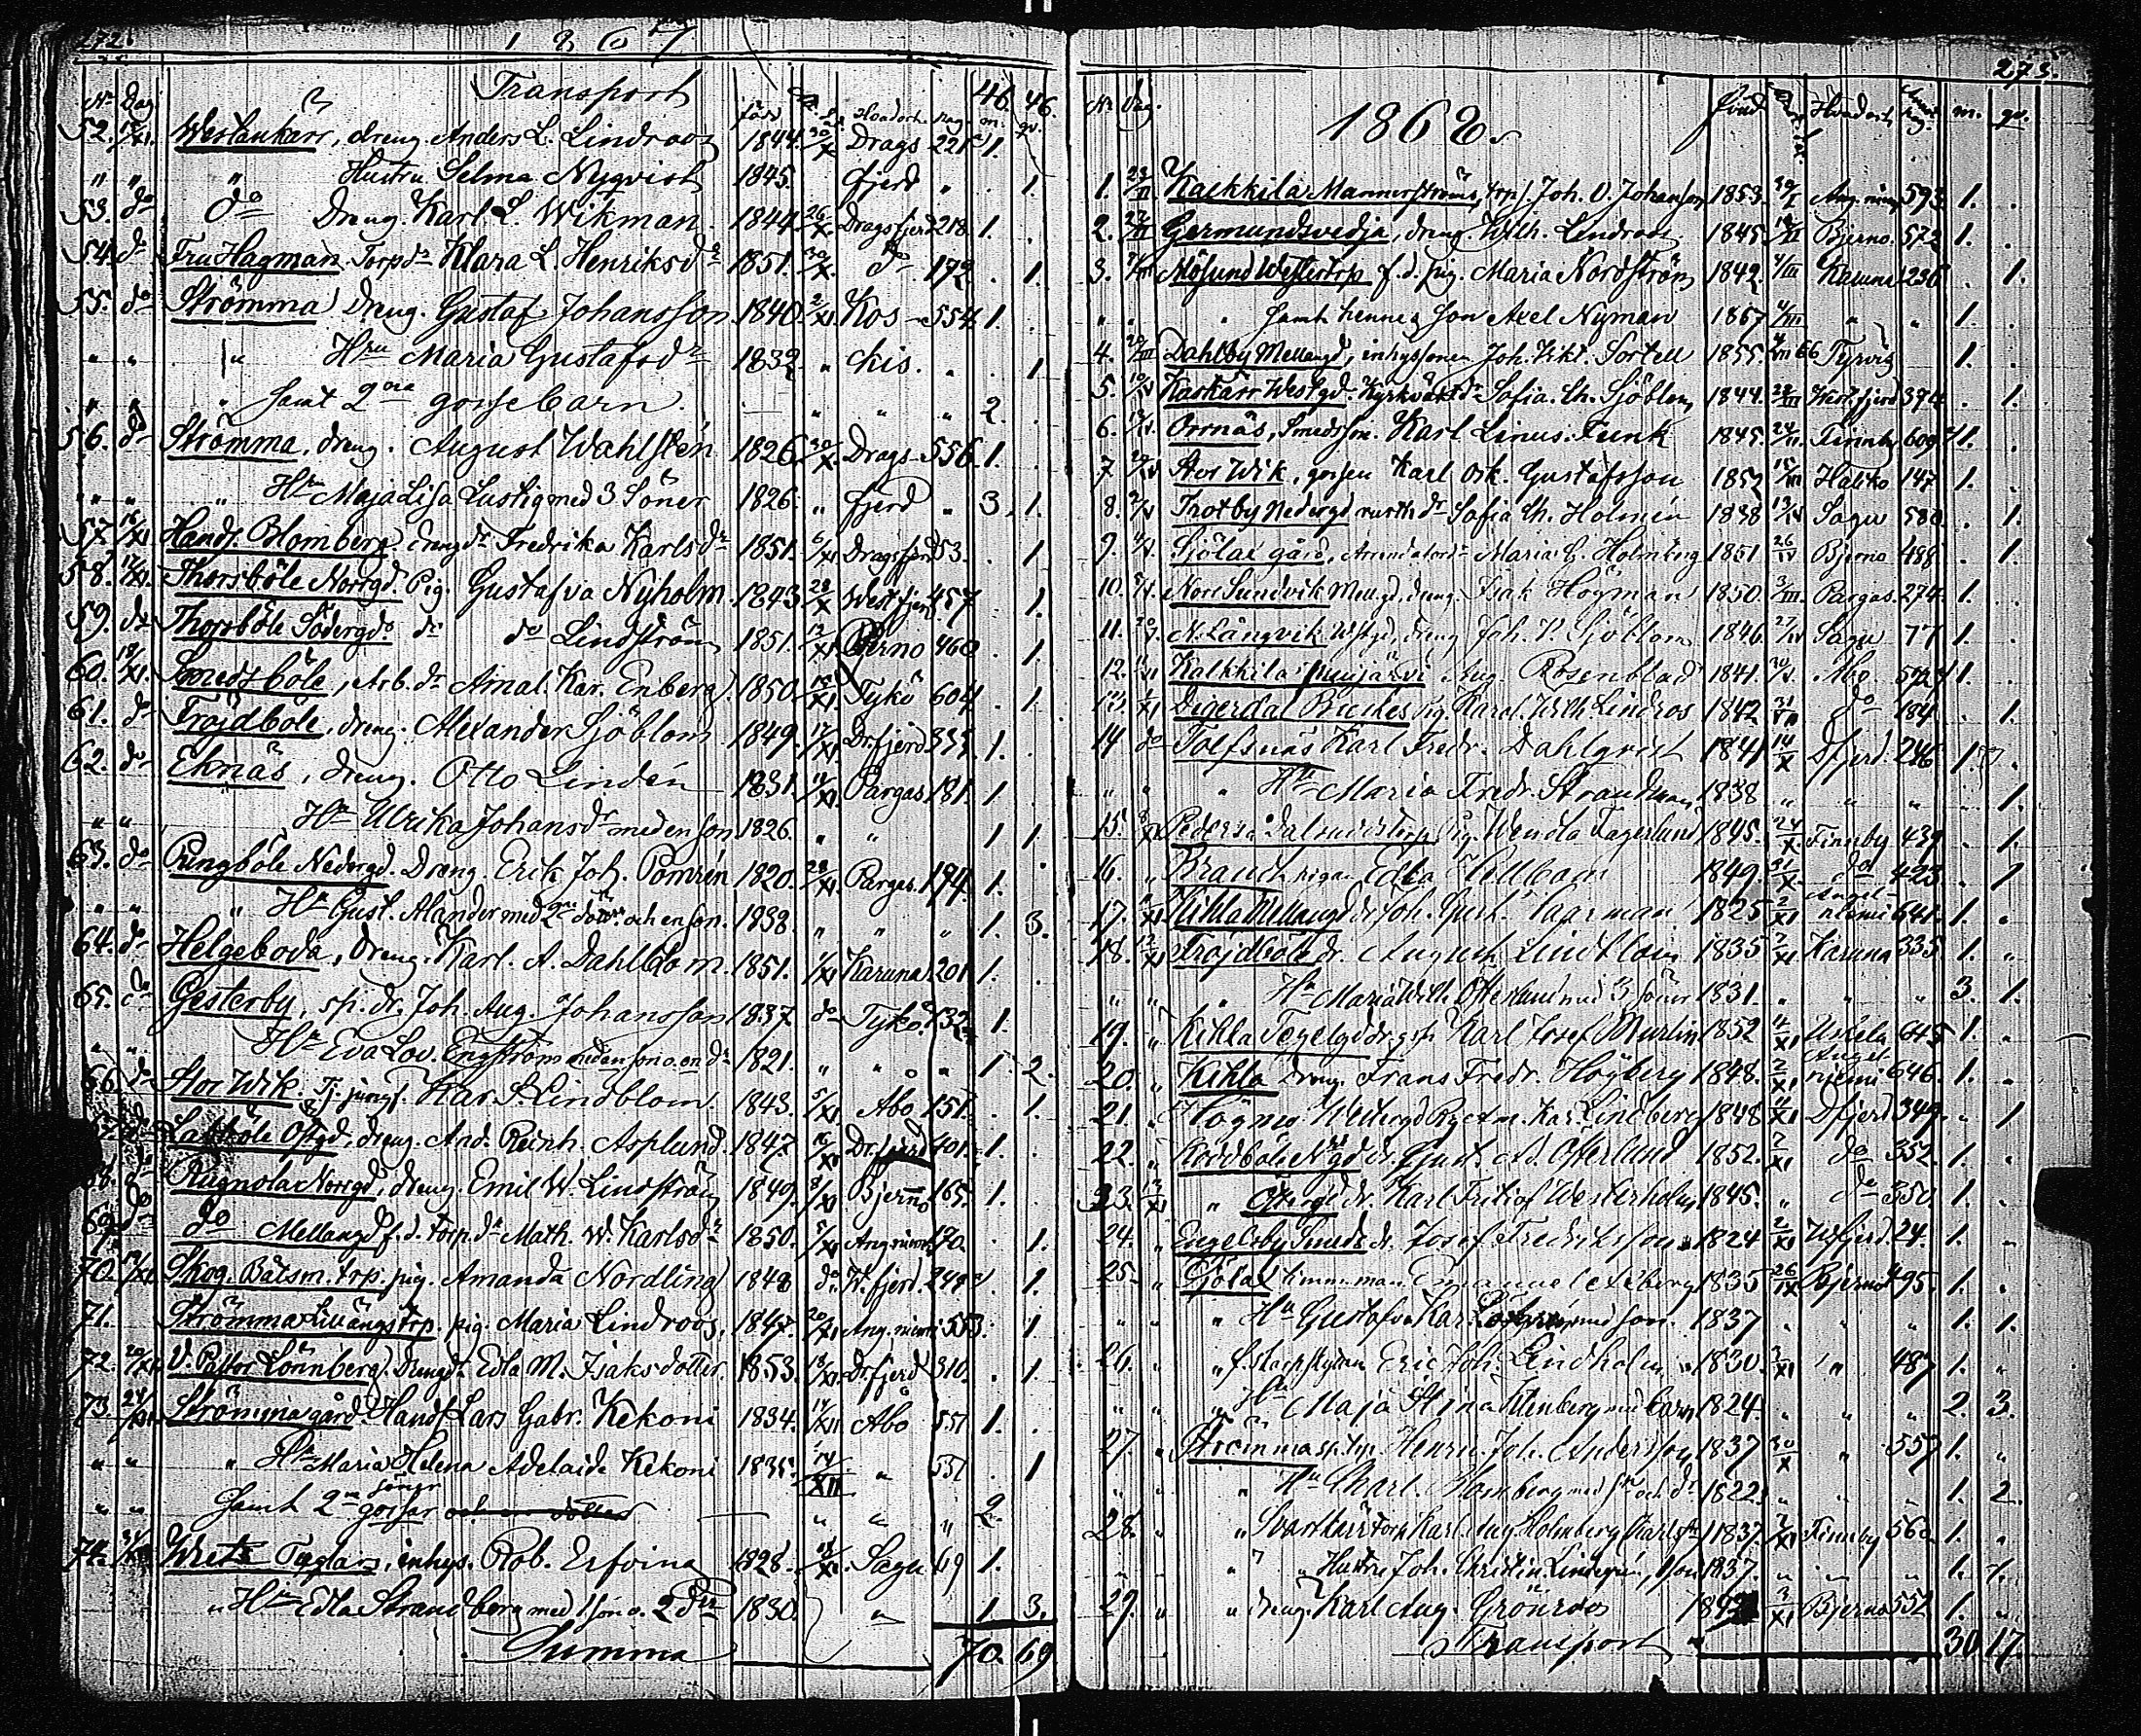 272. 1867
Transport 46. 46.
No Dag. född Hvadort. pag. m. qv.
52. Westankärr, dreng Anders L. Lindroos 1844. 30/X Drags 221 1.
" " " Hustru Selma Nyqvist 1845. fjerd " . 1.
53. do do Dreng. Karl L. Wikman 1844. 26/X Dragsfjerd 218. 1. .
54. do Fru Hagman Torpdr Klara L. Henriksdr 1851. 30/X. do 172. . 1.
55. do Strömma Dreng. Gustaf Johansson 1840. 2/XI. Kos- 554. 1.
" " " Hru Maria Gustafsdr 1832. " kis. " . 1
" " " Samt 2ne gossebarn. " " " 2.
56. do Strömma, dreng. August Wahlstén 1826. 30/X. Drags- 556. 1.
" " " Hru Maja Lisa Lustig med 3 Söner 1826. " fjerd " 3. 1.
57. 16/XI Handl. Blomberg. drengdr Fredrika Karlsdr 1851. 6/XI Dragsfjerd 53. . 1.
58. 17/XI. Thorsböle Norrgd. Pig. Gustafva Nyholm. 1843. 28/X Westfjerd 457 . 1.
59. do Thorsböle Södergd. do do Lindström 1851. 13/XI 460 . 1.
60. 18/XI. Smedsböle, Arb. dr Amal. Kar. Enberg 1850. Tykö 604 . 1.
61. do Fröjdböle, dreng. Alexander Sjöblom 1849. 17/XI Dr.fjerd. 335. 1.
62. do Eknäs, dreng. Otto Lindén 1831. 11/XI. Pargas 181. 1.
" " Hu Ulrika Johansdr med en son 1826. " " 1 1.
63. do Rungböle Nedergd. Dreng. Erik Joh. Pomrén 1820. 28/XI. Pargas. 194. 1.
" " " Hu Gust. Alander med 2ne döttr. och en son. 1838. " " " 1. 3.
64. do Helgeboda, Dreng. Karl. A. Dahlbom. 1851. 1/XI Karuna. 201 1.
65. do Gesterby, sp. dr. Joh. Aug. Johansson 1837 do Tykö. 232 1.
" " Hu Eva Lov. Engström med en son o. en dr 1821. " " " 1 2.
66. do Stor Wik. Tj. jungf. Kar. S. Lindblom. 1843. 5/XI Åbo 151. . 1.
Östgd. dreng. And. Reinh. Asplund. 1847. 16/XI Dr.fjerd 401. 1.
68. Rugnola Norrgd, dreng. Emil W. Lindström 1849. 8/XI Bjernå 165. 1.
69. do do Mellangd f.d. torp.dr Math. W. Karlsdr 1850. 5/XI 170. . 1.
70. 19/XI. Skog. Båtsm. trp. pig. Amanda Nordling 1848 do W.fjerd. 248 . 1.
71. Strömma Liuängs trp. pig. Maria Lindroos. 1847. 20/XI 553. . 1
72. 20/XI V. Pastor Lönnberg. Drengdr Edla M. Isaksdotter. 1853. 18/XI Dr.fjerd 310. . 1.
73. 24/XI Strömma gård. Handl. Lars Gabr. Kekoni 1834. 14/XII Åbo 551 1.
" " " Hu Maria Helena Adelaide Kekoni 1835. 14/XII " 551 . 1
" " Samt 2ne söner gossar och en dotter " " " 2
74. Wreta Tyglars, inhys. Rob. Erfving 1828. Sagu 69 1.
" Hru Edla Strandberg med 1 son o. 2 dr 1830. " 1. 3.
Summa 70. 69
273.
No Dag. 1868. född Hvadort. m. qv.
1. Kaskkila Mannerströms, torp. Joh. V. Johansson 1853. 30/I 593. 1. .
2. Germundsvedja, dreng Wilh. Lindroos 1845. 18/II Bjerno. 572. 1. .
3. Mösund Westertrp f.d. pig. Maria Nordström 1842. 4/III Karuna 236 . 1.
" " " samt hennes son Axel Nyman 1867 4/III " " 1. .
4. Dahlby Mellangd, inhyssonen Joh. Vikt. Sortell 1855. 66 Tyrvis 1. .
5. Westgd. Kyrkvaktdr Sofia. Ch. Sjöblom 1844. 28/III West.fjerd 394. . 1.
6. Ornäs, Smedsson. Karl Linus. Funk 1845. Finnby 609. 1. .
7 Stor Wik, gossen Karl Osk. Gustafsson 1852 Haliko 147 1. .
8. Trotby Nedergd rusth. dr Sofia Ch. Holmén 1838 13/IV Sagu 580. . 1.
9. Sjölax gård, Arrendatorsdr Maria C. Holmberg 1851 26/IV Bjerno 488. . 1.
10. Norr Sundvik Mell.gd, dreng. Isak Högman 1850. 3/III. Pargas. 274. 1. .
11. N. Långvik Westgd, dreng Joh. V. Sjöblom 1846. 27/IV Sagu 77 1. .
12. Kalkkila Aug. Rosenblad 1841. 30/V. Åbo. 572 1. .
13. Digerdal Büchles pig. Karol. Wilh. Lindros 1842. 31/VII do 184. . 1.
14 do Tolfsnäs Karl Fredr. Dahlqvist 1841 14/X Dfjerd. 246 1. .
" " " Hu Maria Fredr. Strandman 1838 " " " . 1.
15. Pedersä pig. Wendla Fagerlund 1845. 24/X. Finnby 439 . 1.
16. " Brand pigan Edla Hellbom 1849 31/X do 423. . 1
17. Kihla Mellangd dr Joh. Gust. Haarman 1825 2/XI Angelniemi 641. 1. .
18. Fröjdböle dr. August Lindblom 1835 7/XI Karuna 335. 1. .
" " " Hu Maria Wilh. Österlund med 3 söner 1831. " " " 3. 1.
19. " Kihla Tegelgd dr Karl Josef Murlin 1852 Uskela 645 1. .
20. " Kihla Dreng. Frans Fredr. Högberg 1848. 2/XI Angelniemi 646. 1. .
21. " Högmo Westergd Kar. Lindberg 1848 Dfjerd 349. . 1
22. " Nordböle N.gd dr Gust. Ad. Österlund 1852. 7/XI do 352. 1. .
23. 13/XI " Östergd dr. Karl Fritiof Westerholm 1845. " do 350. 1. .
24. " Engelsby Smeds dr. Josef Fredriksson 1824 2/XI Wfjerd. 24. 1. .
25. " Sjölax timmerman Emanuel Åkberg 1835 26/IX Bjerno 495. 1. .
" " " Hu Gustafva Kar. med son. 1837 " " " 1. 1.
26. " " Eric Joh. Lindholm 1830. 3/XI " 487 1. .
" " " Hu Maja Stina Wenberg med barn 1824. " " " 2. 3.
27. " Strömma Henric Joh. Andersson 1837 30/X " 557 1. .
" " " Hu Charl. Homberg med son och dr 1822. " " " 1. 2.
28. " " Svartkärr torp Karl Aug Holmberg (Karlsson) 1837. 7/XI Finnby 560. 1. .
" " " Hustru Joh. Christin. Lindgrén, 1 son 1837. " " " 1. 1.
29. " " dreng. Karl Aug. Grönroos 3/XI Bjerno 552 1. .
Transport 30. 17.